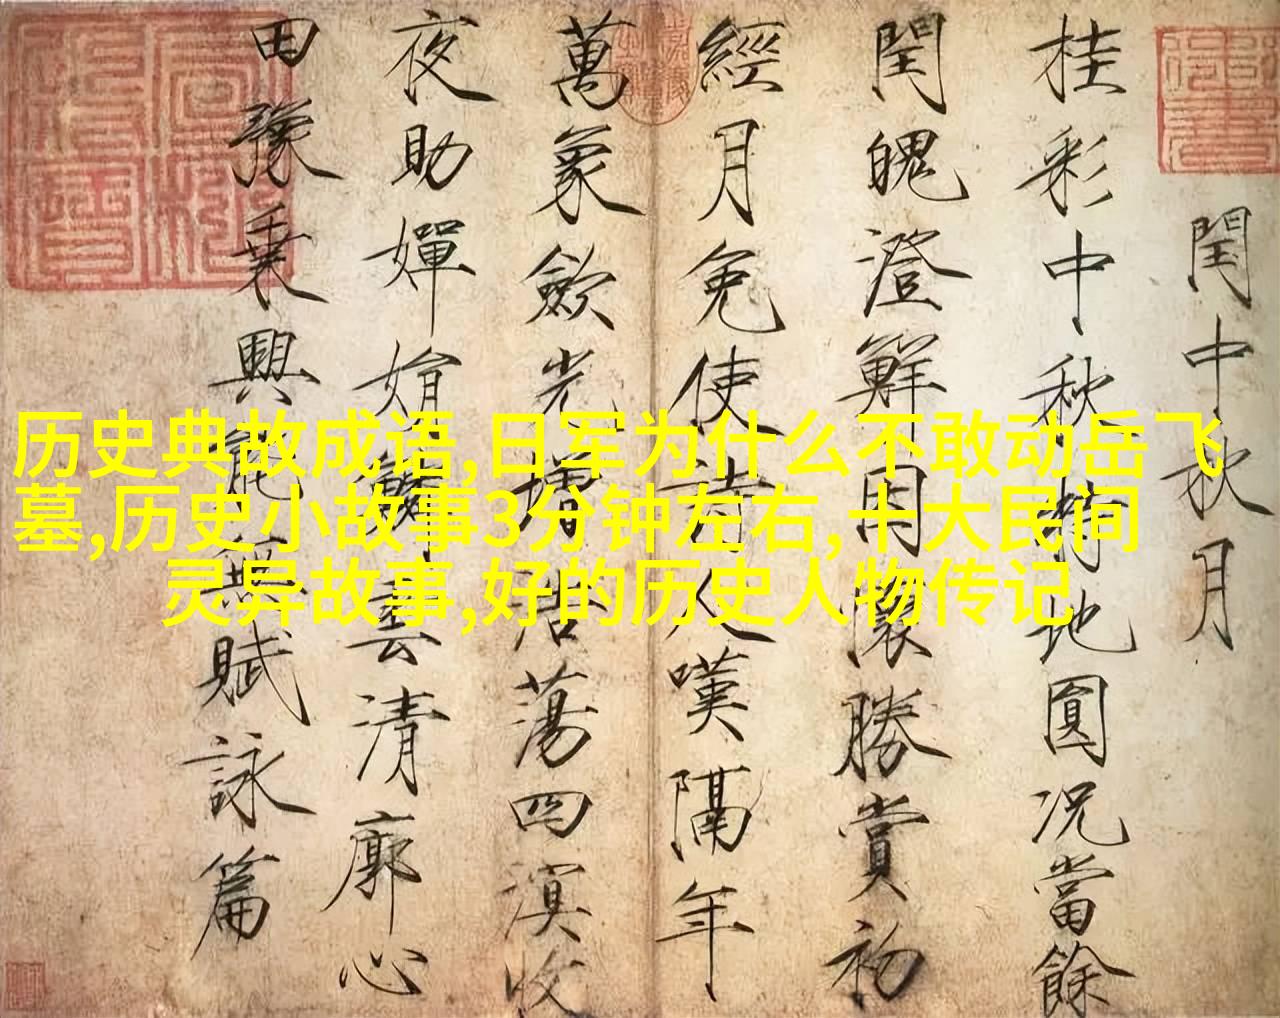 历史典故成语,日军为什么不敢动岳飞
墓,历史小故事3分钟左右,十大民间
灵异故事,好的历史人物传记
閏中秋月
桂彩中秋特地圓况當餘
閏魄澄鮮因懷勝賞初
經月免使詩人嘆隔年
萬象歛光增浩蕩四溟收
夜助嬋娟鱗雲清廓心
田豫乗興能無賦詠篇